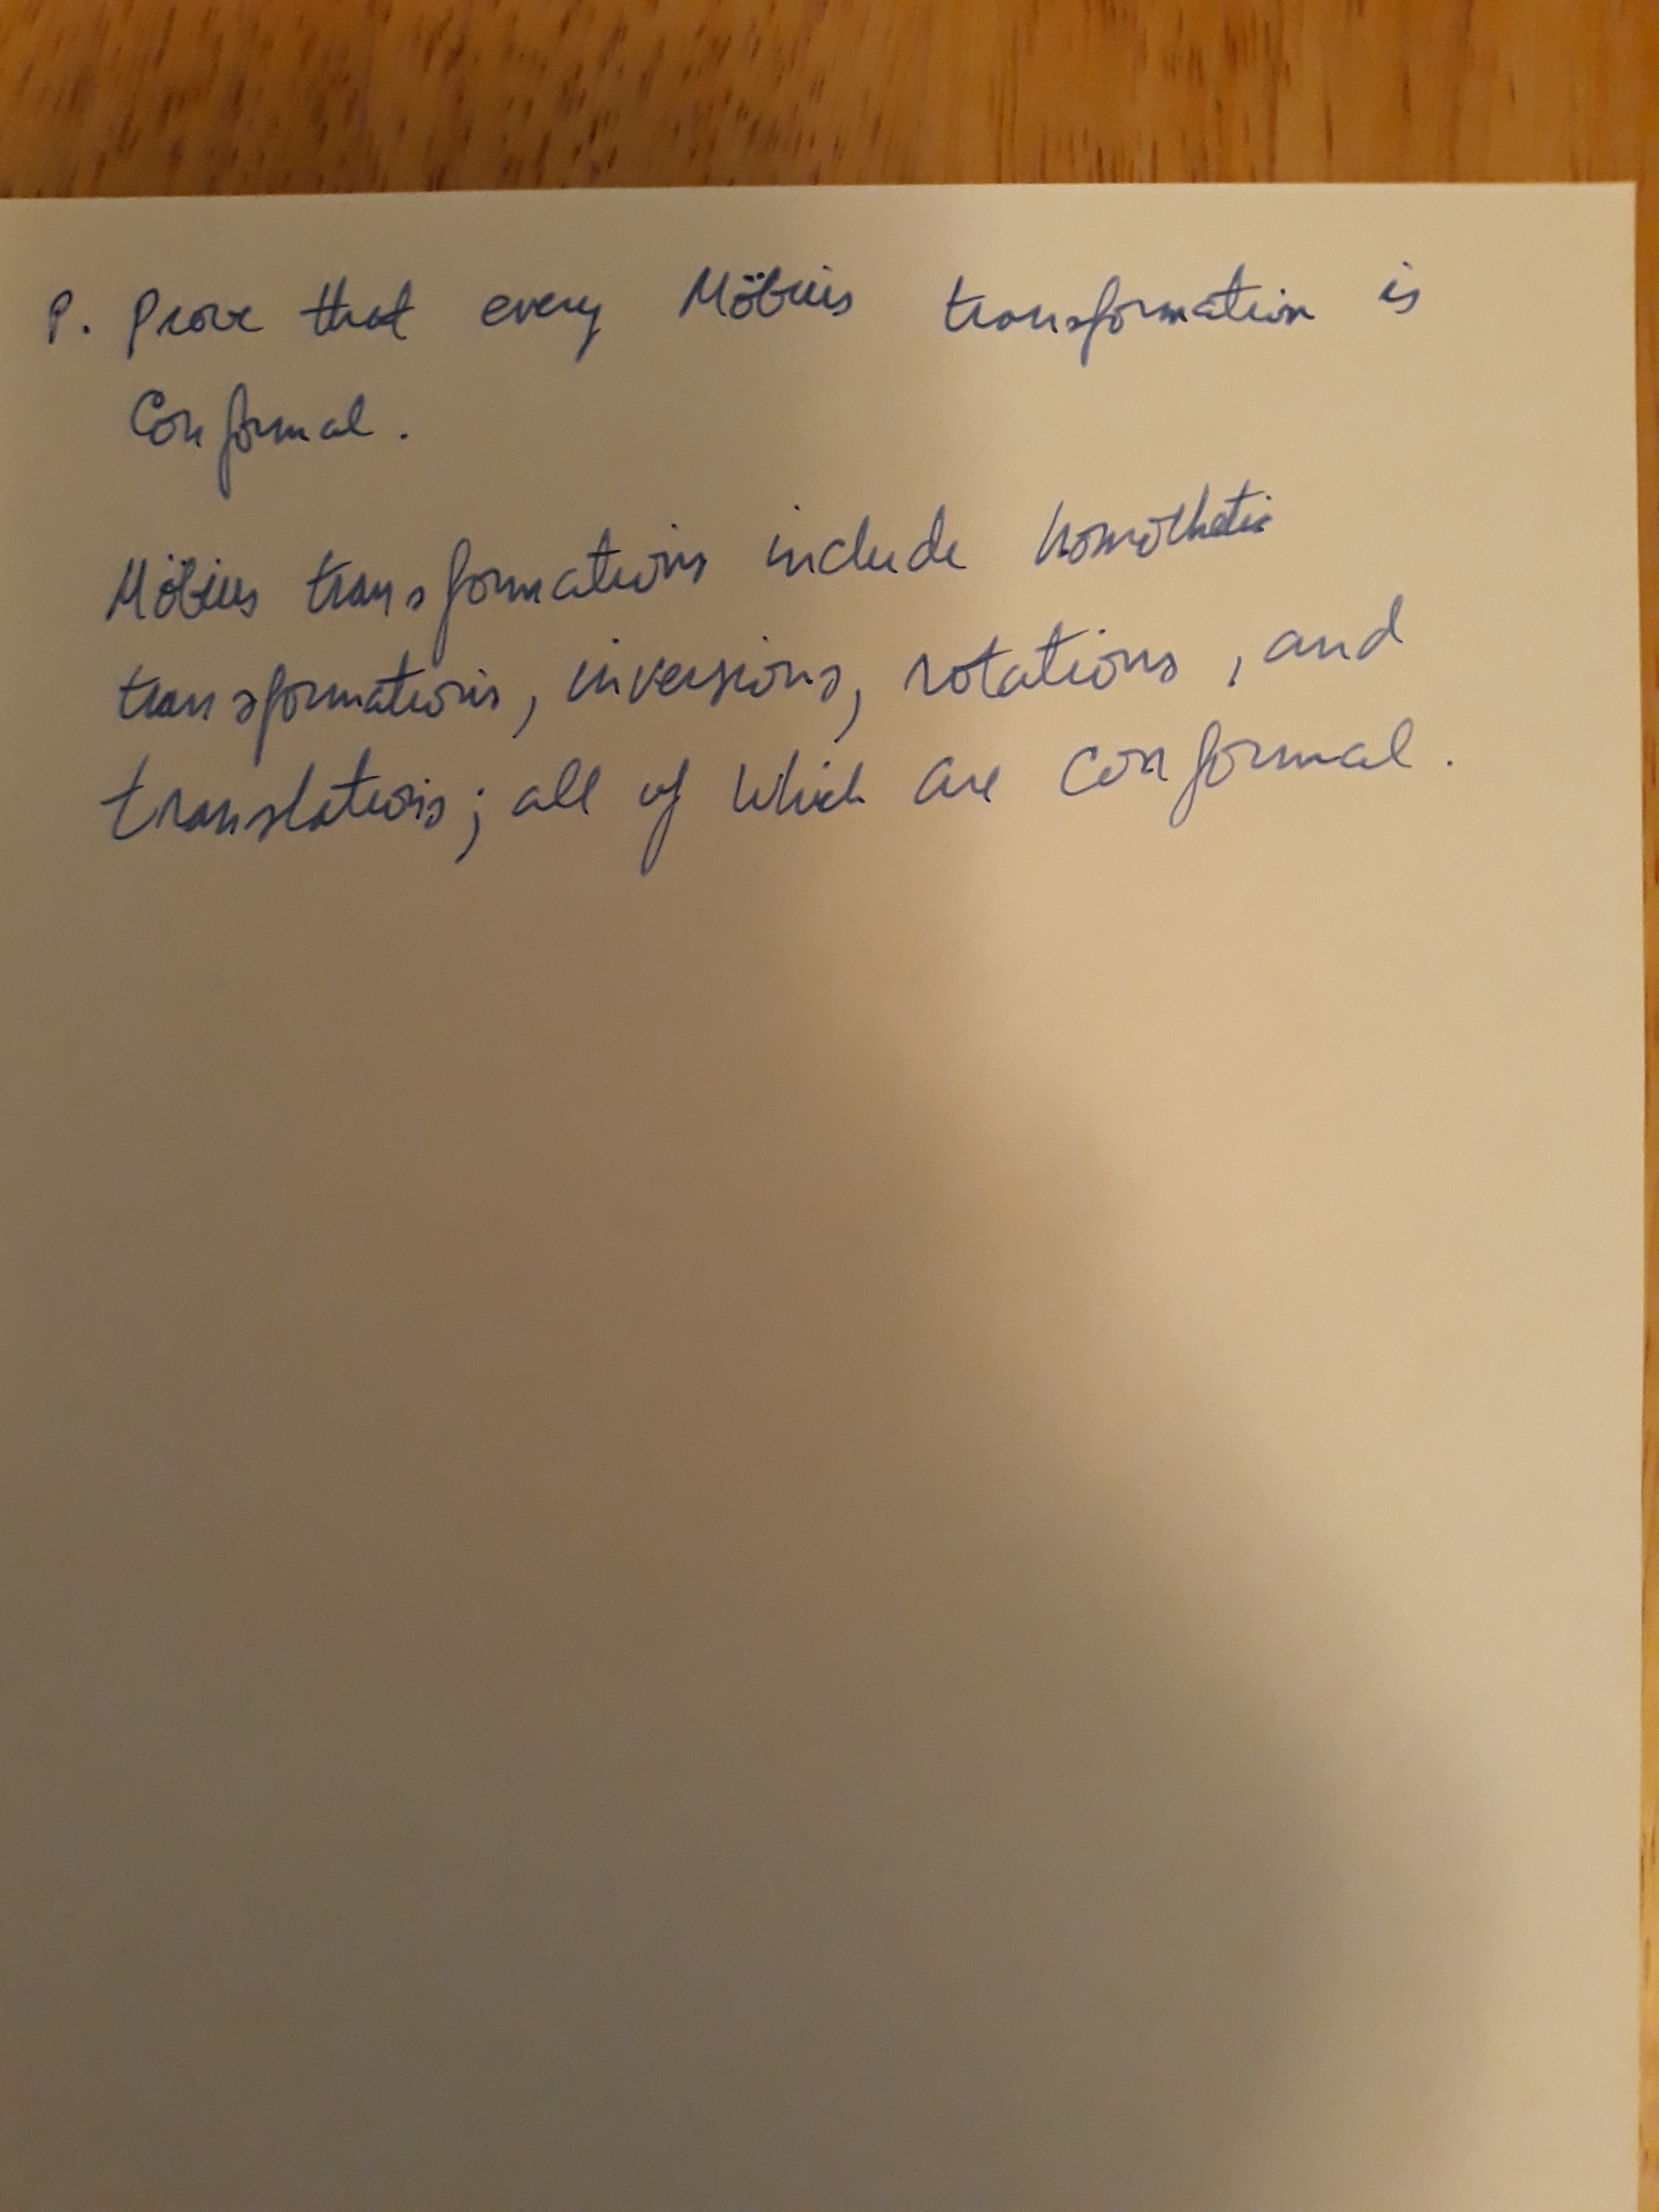 P. Prove that every Möbius transformation is
Conformal.
Möbius transformations include homothetic
transformations, inversions, rotations, and
translations; all of which are conformal.